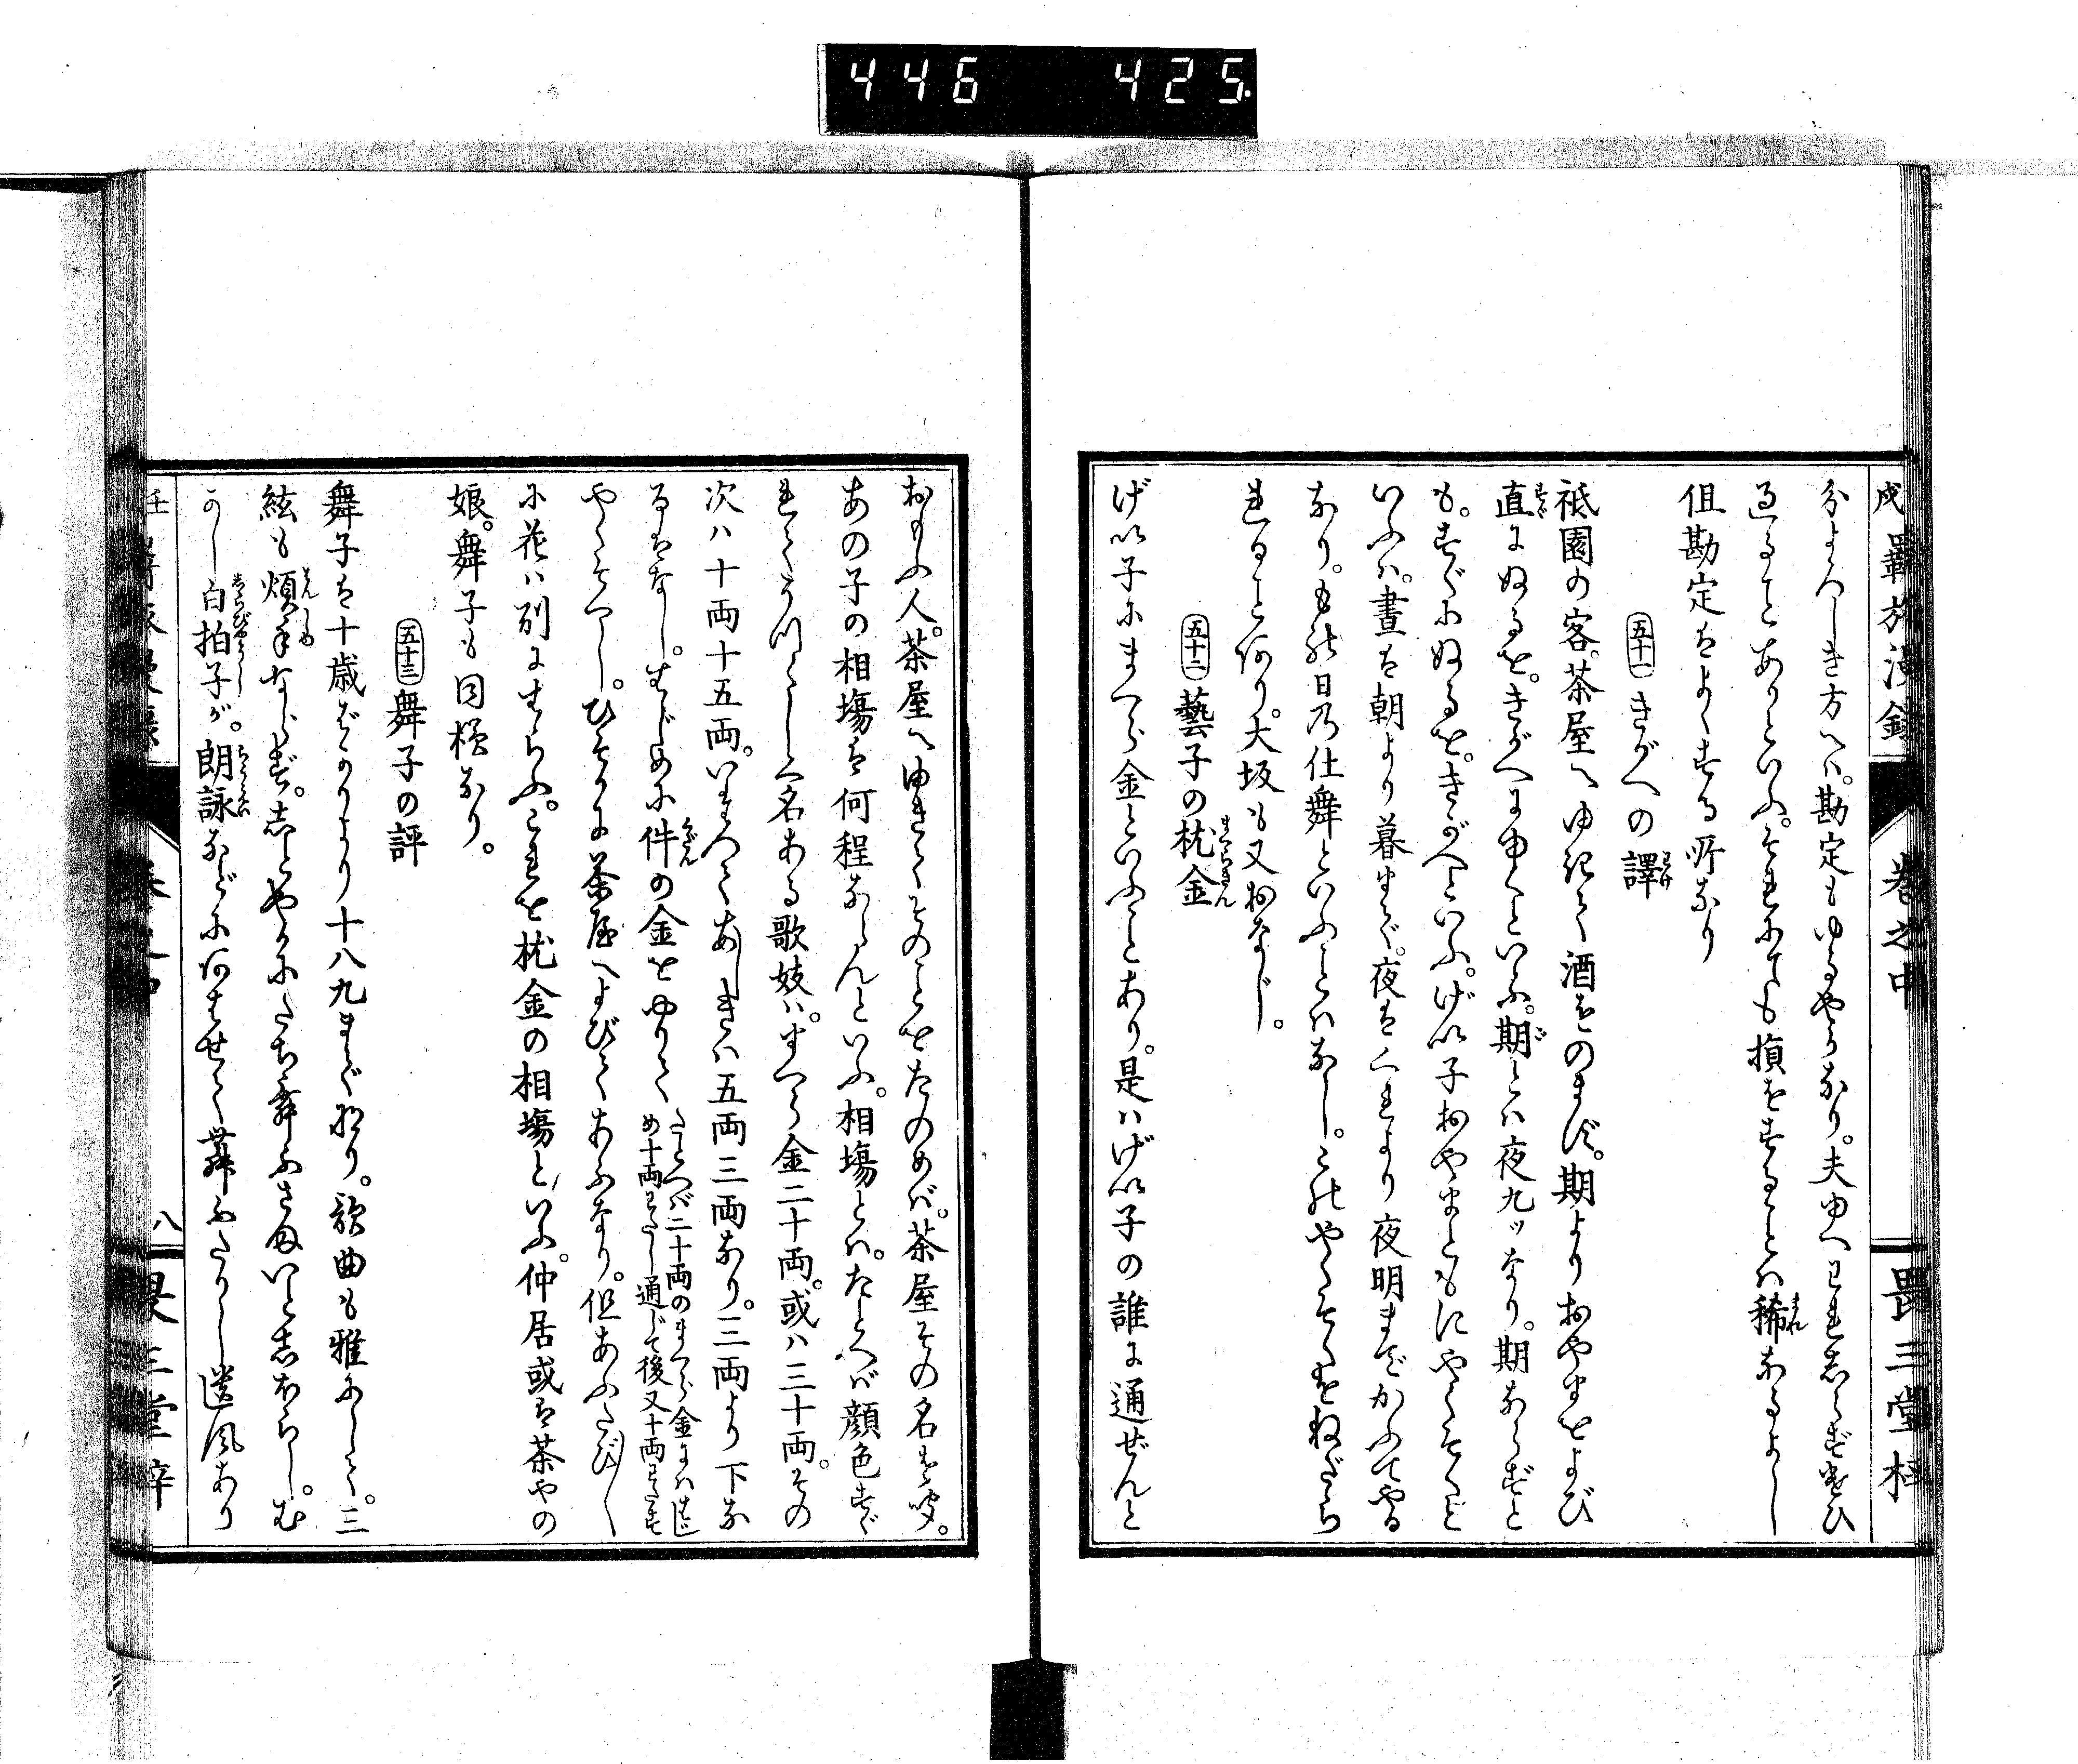 446 425
戌 羇旅漫録 巻之中 畏三堂梓
分よろしき方へハ。勘定もゆるやかなり。夫ゆへにれしらず遣ひ
過ることありといふ。それにても損をすることハ稀なるよし
但勘定はよくする所なり
五十一 きがへの譯
祇園の客。茶屋へゆきて酒をのまず。期よりおやまをよび
直にぬるを。きがへにゆくといふ。期とハ夜九ツなり。期ならずと
も。すぐにぬるを。きがへといふ。げい子おやまともにやくそくど
いふハ。晝は朝より暮まで。夜はくれより夜明までかふてやる
なり。もの日の仕舞といふことハなし。このやくそくをねだら
れることあり。大坂も又おなじ。
五十二 藝子の枕金
げい子にまくら金といふことあり。是ハげい子の誰に通ぜんと
おもふ人。茶屋へゆきてそのことをたのめば。茶屋その名を聞。
あの子の相塲は何程ならんといふ。相塲とハ。たとへば顔色すぐ
れてうつくしく名ある歌妓ハ。まくら金二十両。或ハ三十両。その
次ハ十両十五両。いたつてあしきハ五両三両なり。三両より下な
るはなし。はじめに件の金をやりて たとへば二十両のまくら金にハはじ
め十両わたし通じて後又十両わたす
やくそくし。ひそかに茶屋へよびてあふなり。但あふたび〱
に花ハ別にはらふ。これを枕金の相塲といふ。仲居或は茶やの
娘。舞子も同様なり。
五十三 舞子の評
舞子は十歳ばかりより十八九まであり。歌曲も雅にして。三
絃も煩手ならず。しとやかにたち舞ふさまいとしほらし。む
かし白拍子が。朗詠などにあはせて舞ふたりし遺風あり
八